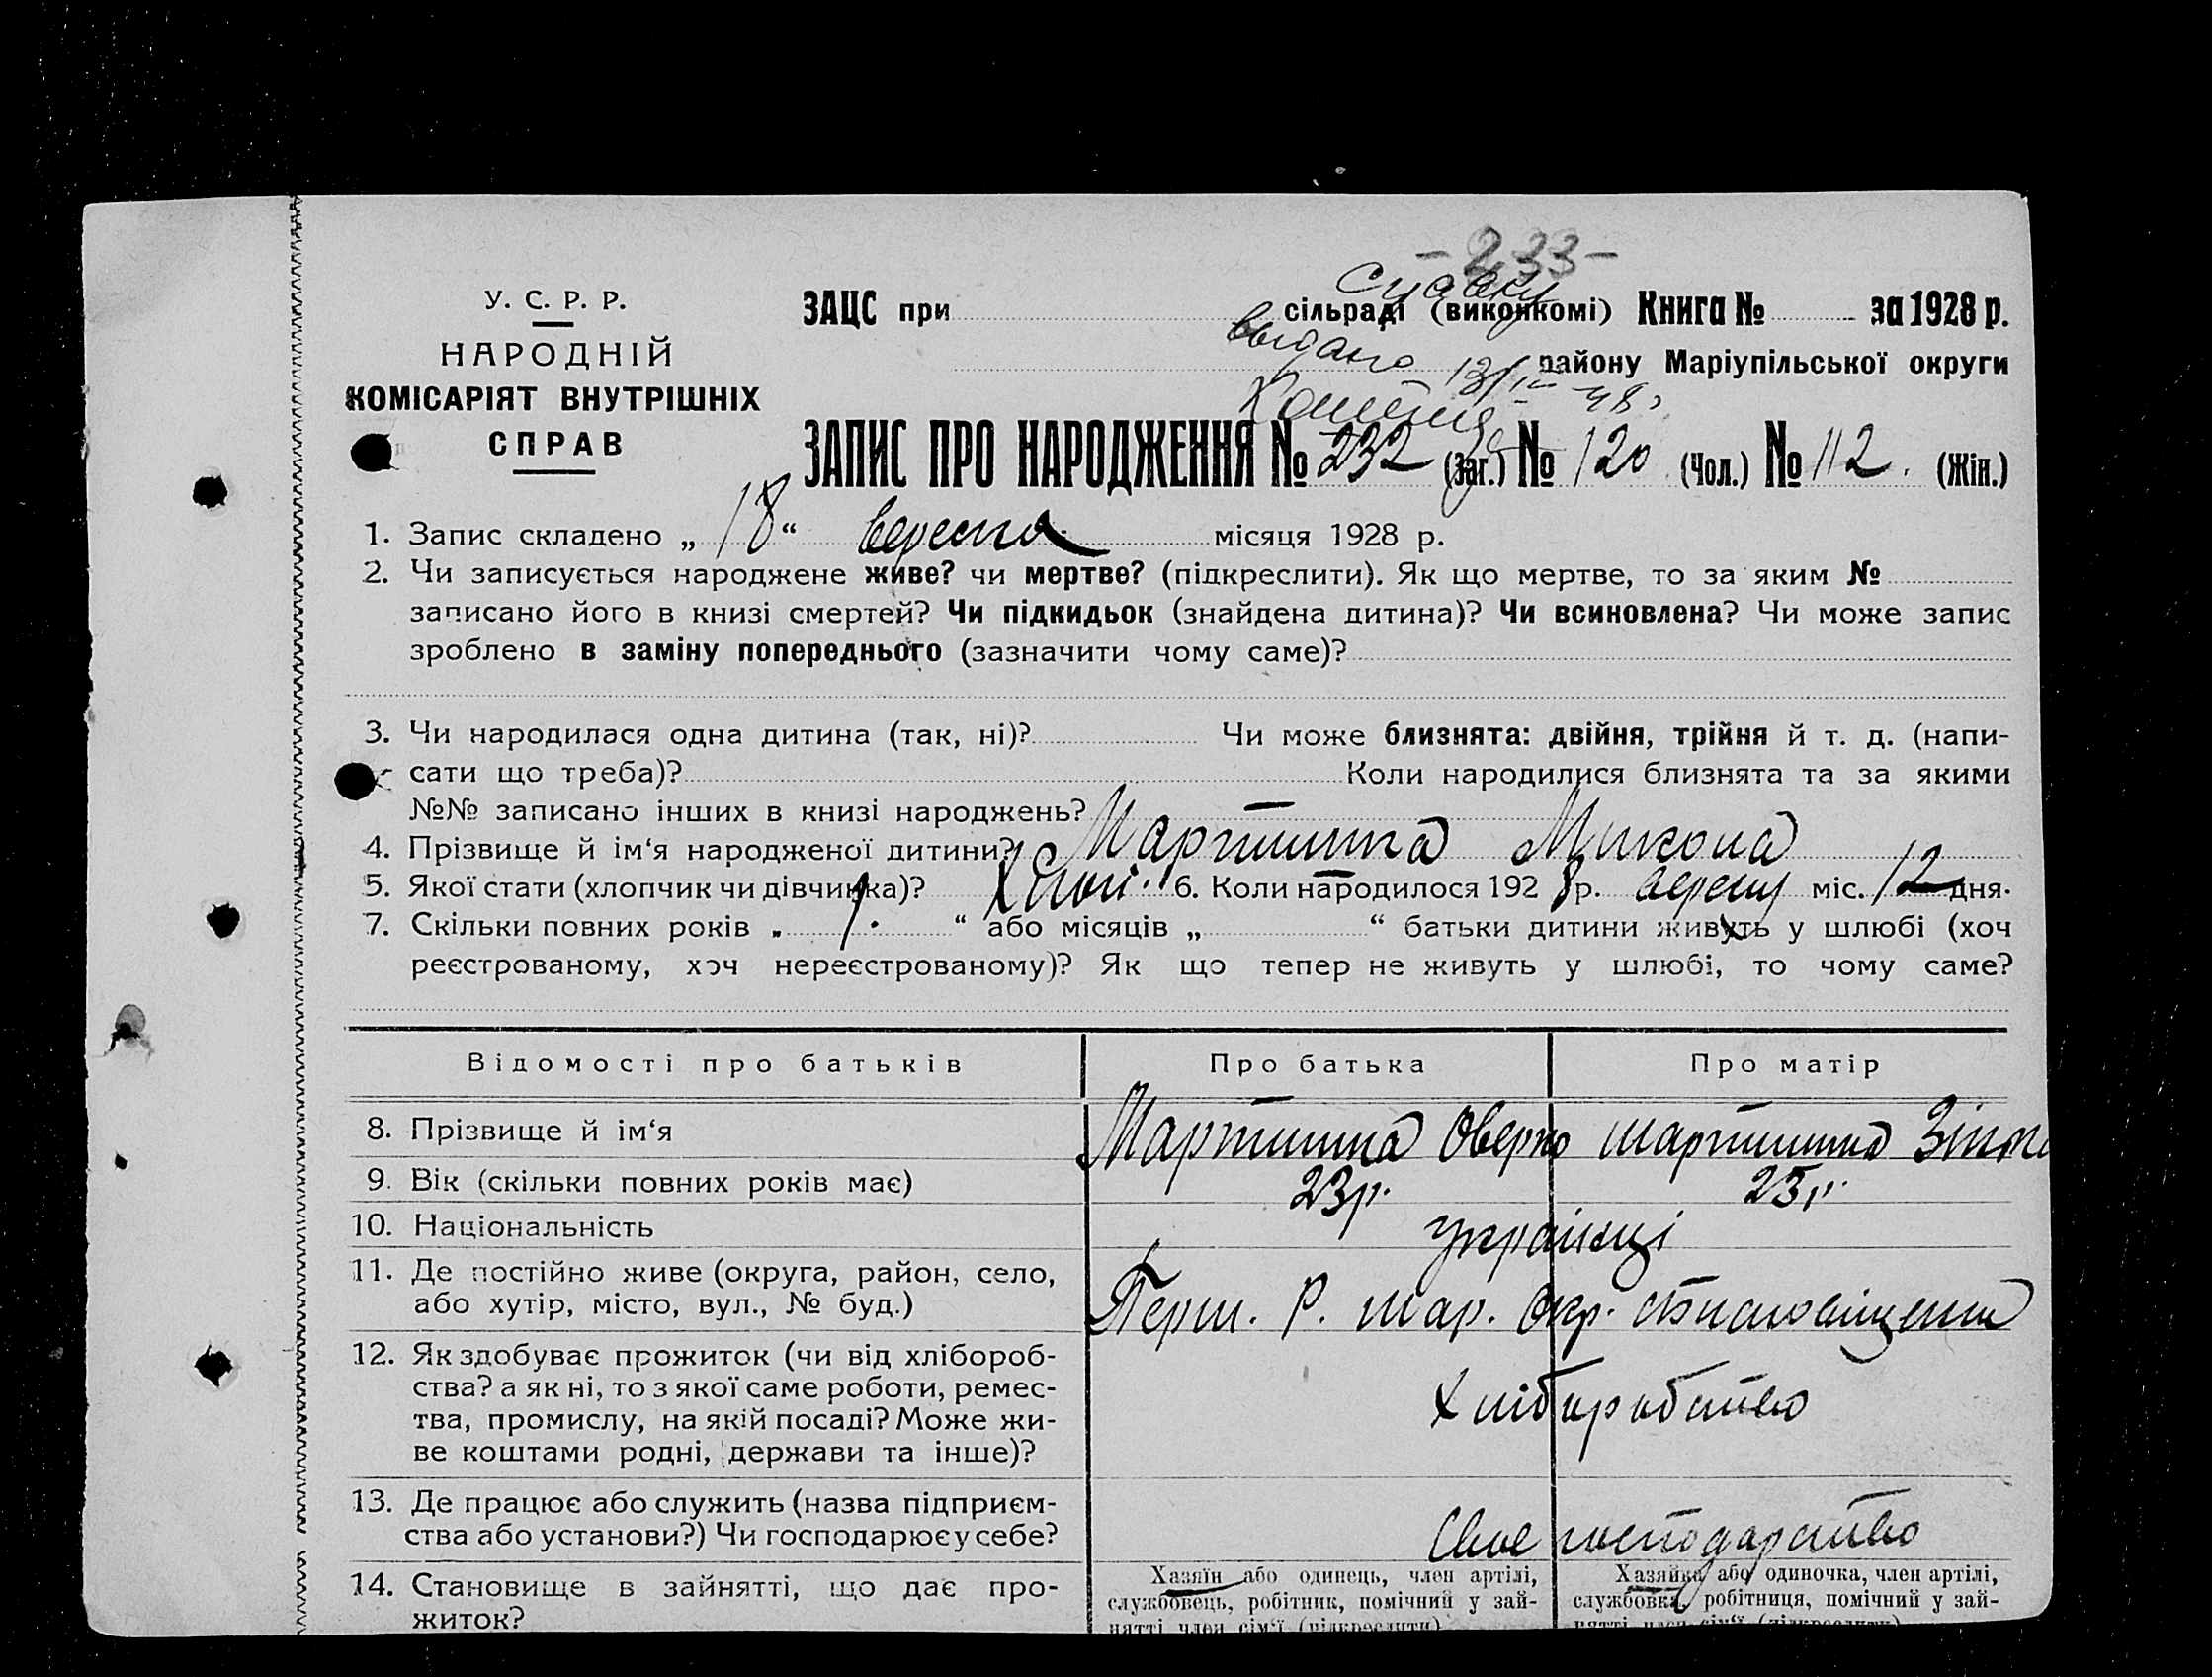 - 233 -
У. С. Р. Р.
НАРОДНІЙ
КОМІСАРІЯТ ВНУТРІШНІХ
СПРАВ
ЗАЦС при сільраді (виконкомі) Книга № за 1928 р.
видано 13/IV 48 району Маріупільської округи
ЗАПИС ПРО НАРОДЖЕННЯ № 232 (заг.) № 120 (Чол.) № 112. (Жін.)
1. Запис складено „ 18 “ вересня місяця 1928 р.
2. Чи записується народжене живе? чи мертве? (підкреслити). Як що мертве, то за яким №
записано його в книзі смертей? Чи підкидьок (знайдена дитина)? Чи всиновлена? Чи може запис
зроблено в заміну попереднього (зазначити чому саме)?
3. Чи народилася одна дитина (так, ні)? Чи може близнята: двійня, трійня й т. д. (напи-
сати що треба)? Коли народилися близнята та за якими
№№ записано інших в книзі народжень?
4. Прізвище й ім‘я народженої дитини? Мартишка Микола
5. Якої стати (хлопчик чи дівчинка)? Хлоп. 6. Коли народилося 192 8 р. вересн міс. 12 дня.
7. Скільки повних років „ 1. “ або місяців „ “ батьки дитини живуть у шлюбі (хоч
реєстрованому, хоч нереєстрованому)? Як що тепер не живуть у шлюбі, то чому саме?
Відомості про батьків Про батька Про матір
8. Прізвище й ім‘я Мартишка Оверко Мартишка
9. Вік (скільки повних років має) 23р. 23р.
10. Національність українці
11. Де постійно живе (округа, район, село,
або хутір, місто, вул., № буд.) Перш. Р. Мар. Окр.
12. Як здобуває прожиток (чи від хлібороб-
ства? а як ні, то з якої саме роботи, ремес-
тва, промислу, на якій посаді? Може жи-
ве коштами родні, держави та інше)? Хліборобство
13. Де працює або служить (назва підприєм-
ства або установи?) Чи господарює у себе? Своє господарство
14. Становище в зайнятті, що дає про-
житок?
Хазяїн або одинець, член артілі,
службовець, робітник, помічний у зай-
нятті член сім‘ї (підкреслити)
Хазяйка або одиночка, член артілі,
службовка, робітниця, помічний у зай-
нятті член сім‘ї (підкреслити)